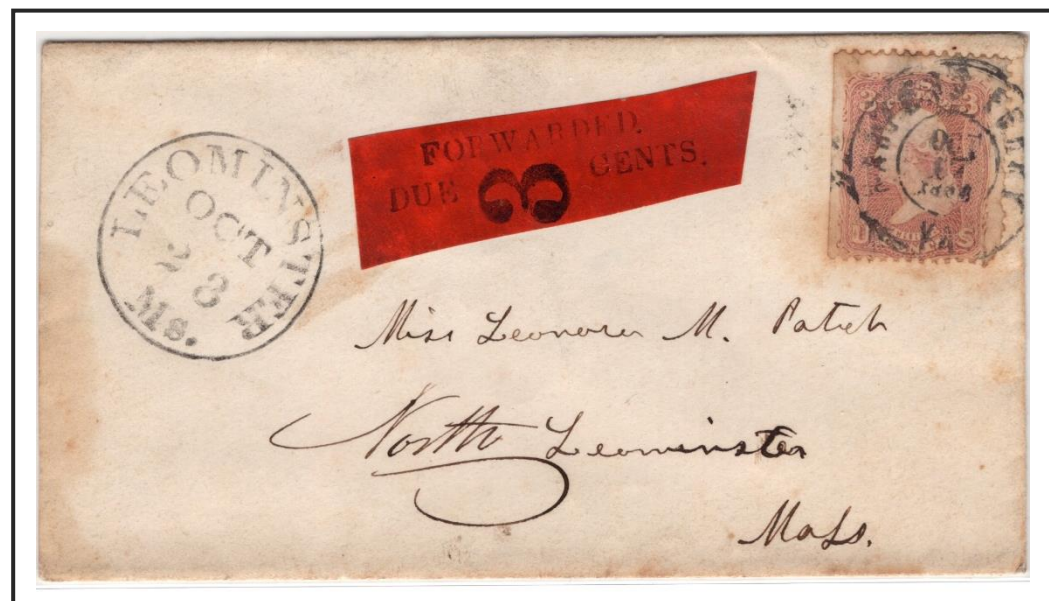 LEOMINSTER
OCT
28
Ms.
FORWARDED.
DUE 3 CENTS.
3 3
HARPERS FERRY
OCT
VA
Miss Leonora M. Patch
North Leominster
Mass.